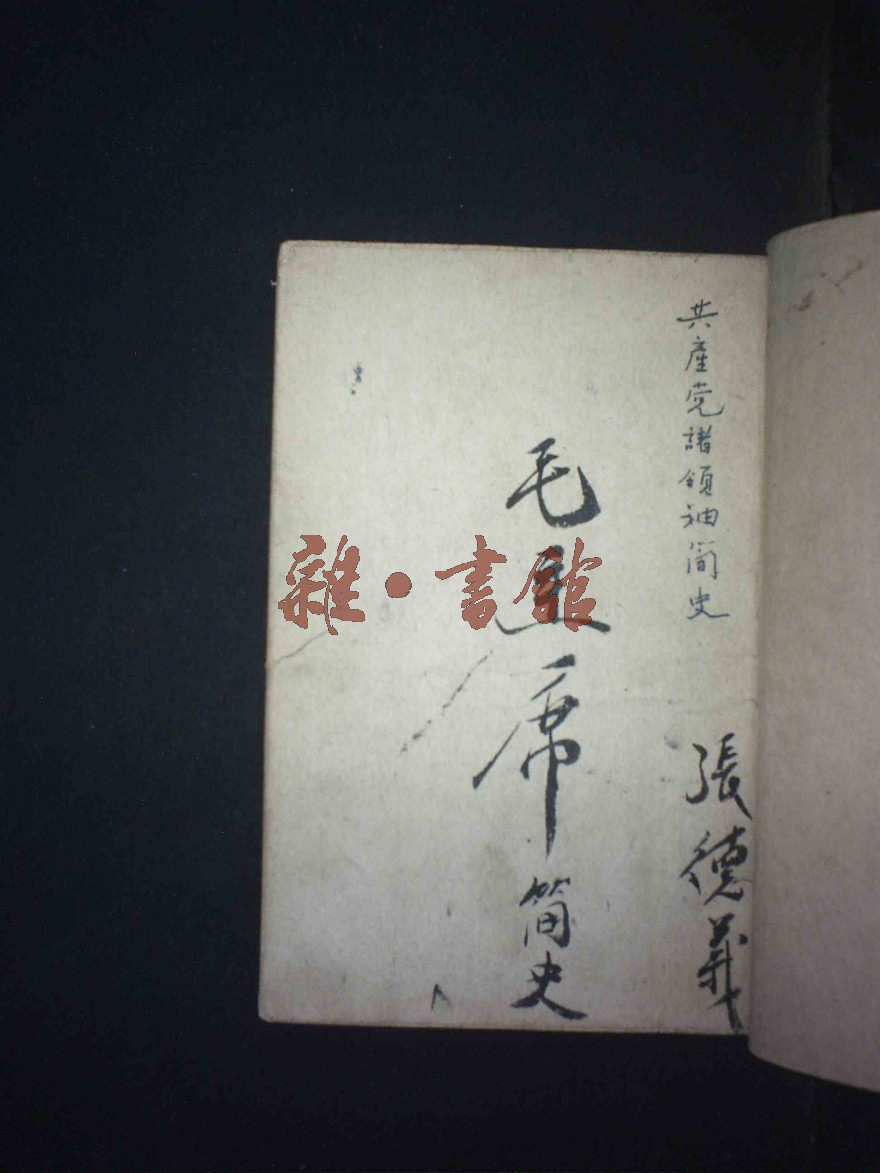 共產党諸領袖简史
張德義
毛主席简史
雜·書館